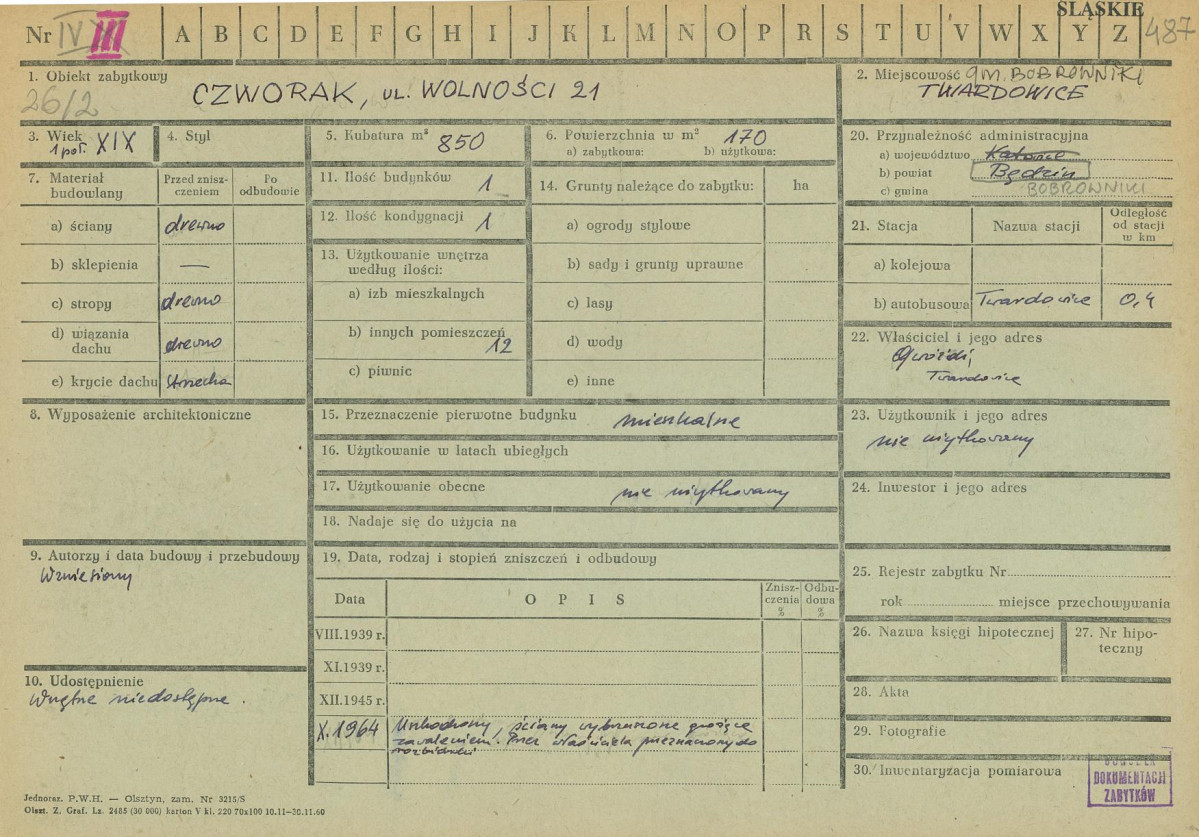 ŚLĄSKIE
Nr IV III A B C D E F G H I J K L M N O P R S T U V W X Y Z 487
1. Obiekt zabytkowy
26/2
CZWORAK, UL. WOLNOŚCI 21
2. Miejscowość gm. BOBROWNIKI
TWARDOWICE
3. Wiek
1 poł. XIX
4. Styl
5. Kubatura m³ 850
6. Powierzchnia w m² 170
a) zabytkowa: b) użytkowa:
7. Materiał budowlany
Przed znisz-
czeniem
Po
odbudowie
a) ściany drewno
b) sklepienia —
c) stropy drewno
d) wiązania
dachu drewno
e) krycie dachu strzecha
8. Wyposażenie architektoniczne
9. Autorzy i data budowy i przebudowy
Wzniesiony
10. Udostępnienie
Wnętrze niedostępne.
11. Ilość budynków 1
12. Ilość kondygnacji 1
13. Użytkowanie wnętrza
według ilości:
a) izb mieszkalnych
b) innych pomieszczeń
12
c) piwnic
14. Grunty należące do zabytku: ha
a) ogrody stylowe
b) sady i grunty uprawne
c) lasy
d) wody
e) inne
15. Przeznaczenie pierwotne budynku mieszkalne
16. Użytkowanie w latach ubiegłych
17. Użytkowanie obecne nie użytkowany
18. Nadaje się do użycia na
19. Data, rodzaj i stopień zniszczeń i odbudowy
Data
O P I S
Znisz-
czenia
%
Odbu-
dowa
%
VIII.1939 r.
XI.1939 r.
XII.1945 r.
X.1964 Uszkodzony, ściany wybrzuszone grożące
zawaleniem. Przez właściciela przeznaczony do
rozbiórki
20. Przynależność administracyjna
a) województwo Katowice
b) powiat Będzin
c) gmina BOBROWNIKI
21. Stacja
Nazwa stacji
Odległość
od stacji
w km
a) kolejowa
b) autobusowa Twardowice 0,4
22. Właściciel i jego adres
Twardowice
23. Użytkownik i jego adres
nie użytkowany
24. Inwestor i jego adres
25. Rejestr zabytku Nr
rok miejsce przechowywania
26. Nazwa księgi hipotecznej
27. Nr hipo-
teczny
28. Akta
29. Fotografie
30. Inwentaryzacja pomiarowa
DOKUMENTACJI
ZABYTKÓW
Jednoraz. P.W.H. — Olsztyn, zam. Nr 3215/S
Olszt. Z. Graf. Lz. 2485 (30 000) karton V kl. 220 70x100 10.11—30.11.60